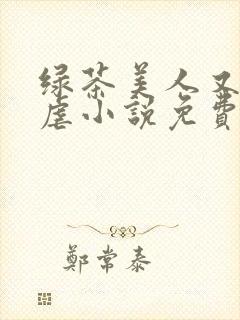 绿茶美人又
虐小説免費
鄭常泰